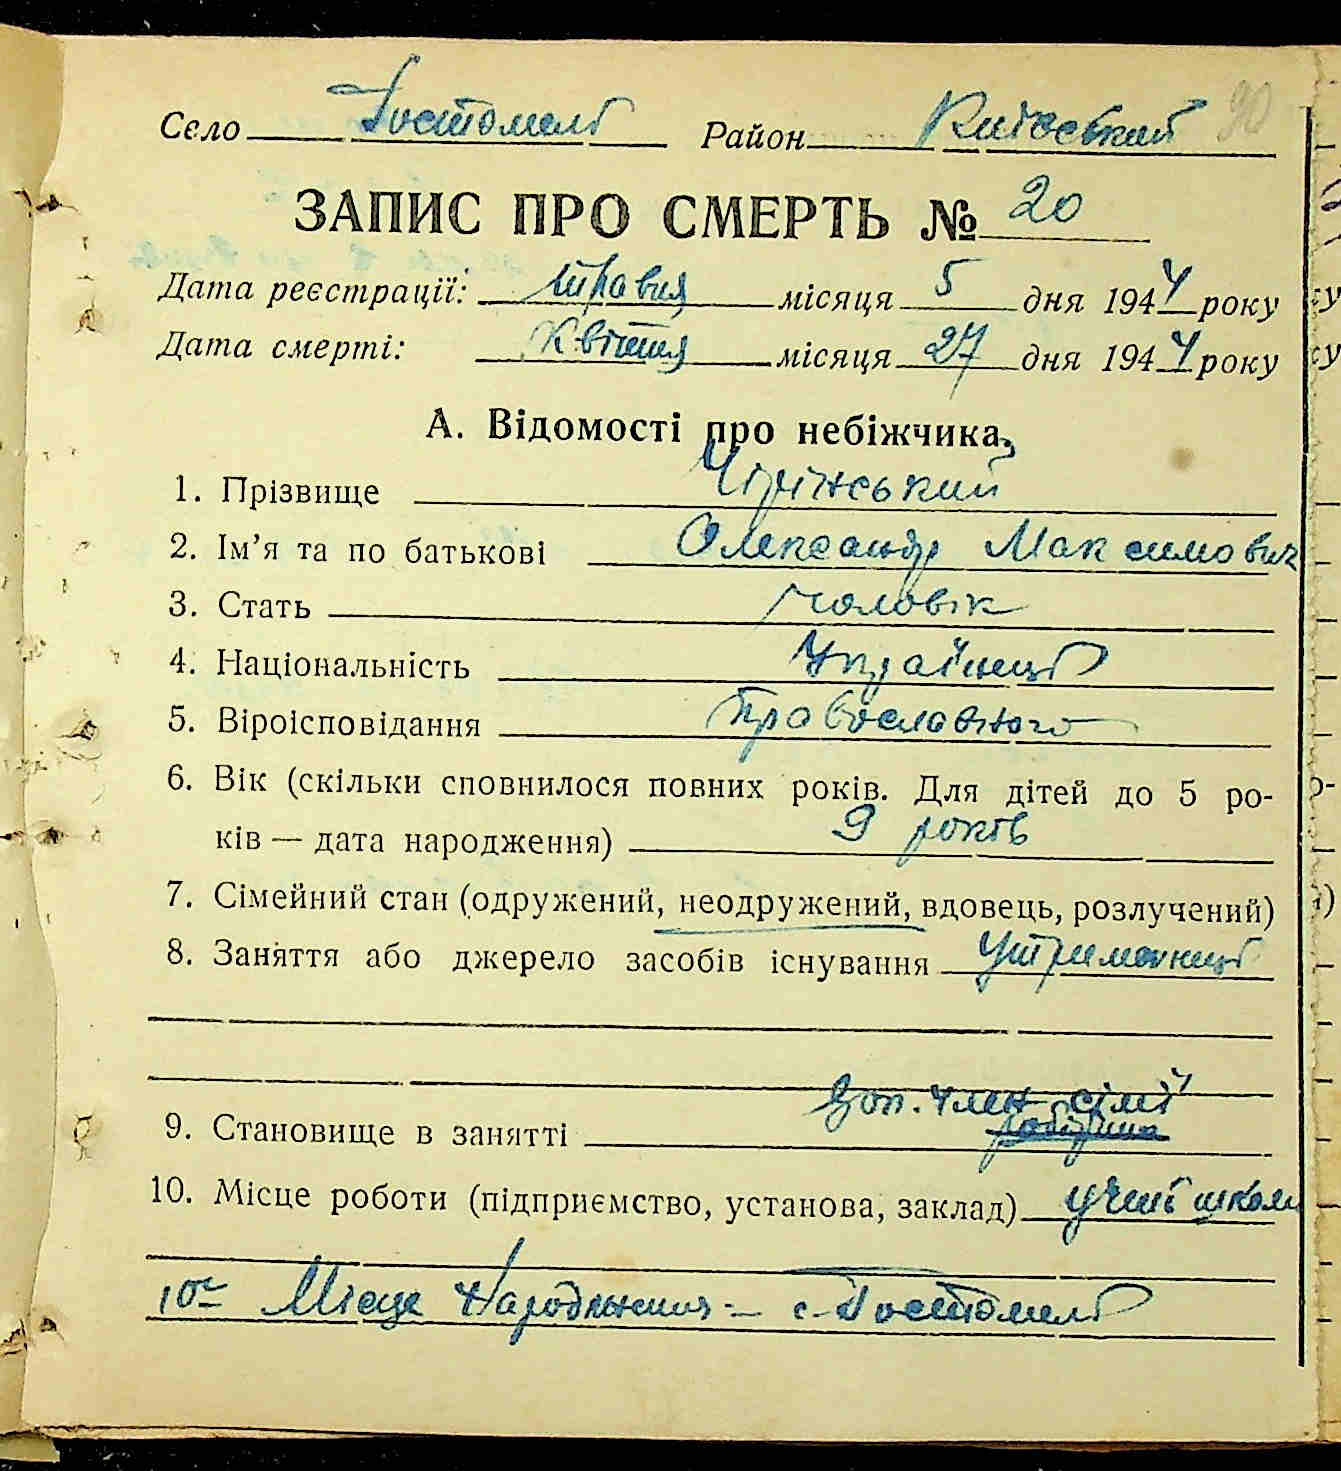 Село Гостомель Район Київський 90
ЗАПИС ПРО СМЕРТЬ № 20
Дата реєстрації: травня місяця 5 дня 1944 року
Дата смерті: Квітня місяця 27 дня 1944 року
А. Відомості про небіжчика
1. Прізвище
2. Ім’я та по батькові Олександр Максимович
3. Стать чоловік
4. Національність Українець
5. Віроісповідання Православного
6. Вік (скільки сповнилося повних років. Для дітей до 5 ро-
ків — дата народження) 9 років
7. Сімейний стан (одружений, неодружений, вдовець, розлучений)
8. Заняття або джерело засобів існування Утриманець
Доп. член сім'ї
9. Становище в занятті
10. Місце роботи (підприємство, установа, заклад) учень школи
10а Місце Народження — с. Гостомель